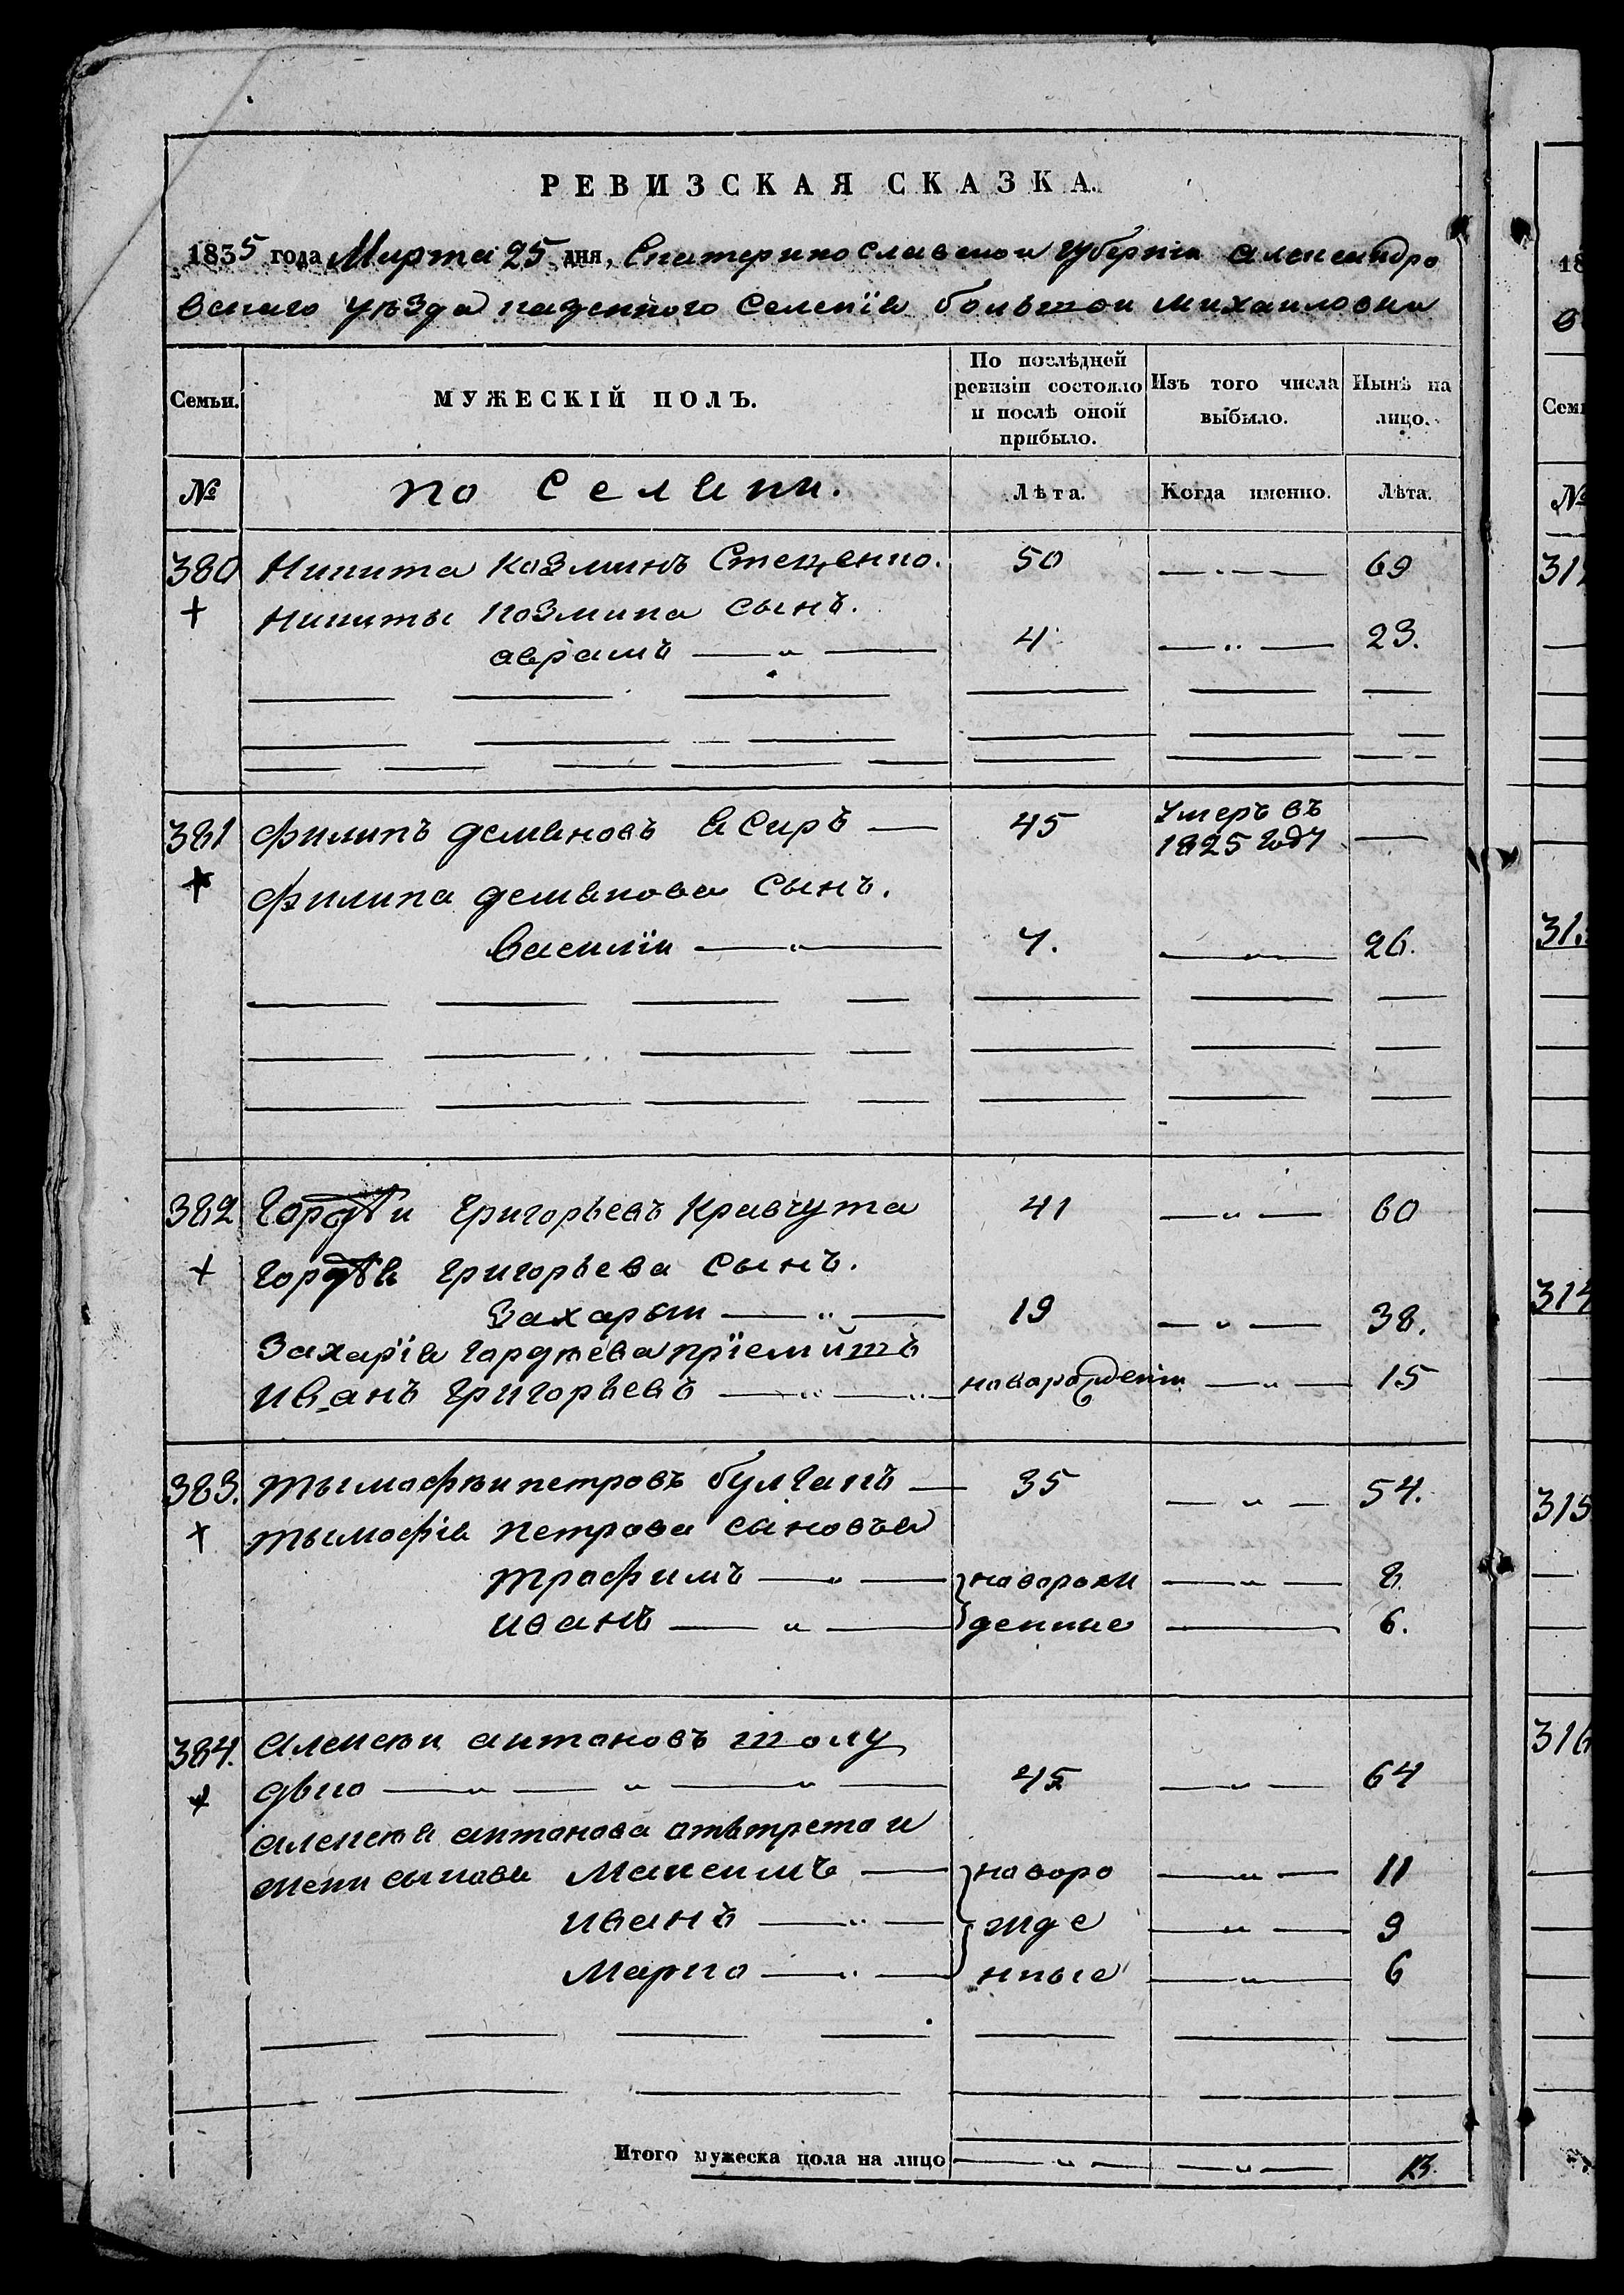 РЕВИЗСКАЯ СКАЗКА.
1835 года Марта 25 дня, Екатеринославской Губерніи Александро
вскаго уѣзда казенного Селенія большой михайловки
Семьи.
МУЖЕСКІЙ ПОЛЪ.
По послѣдней ревизіи состояло и послѣ оной прибыло.
Изъ того числа выбыло.
Нынѣ на лицо.
№
Лѣта.
Когда именно.
Лѣта.
380 Никита козминъ Стеценко. 50 69
Никиты козмина сынъ.
аврамъ 4 23.
381 филипъ демяновъ 45 Умеръ въ
1825 году
филипа демянова сынъ.
василіи 7. 26.
382 Гордѣи григорьевъ кравчута 41 60
Гордѣя григорьева сынъ.
Захарыи 19 38.
Захарія гордѣева пріемишъ
Иванъ григорьевъ новорожденіи 15
383. тымофѣи петровъ булганъ 35 54.
тымофія петрова сыновья
трофимъ новорож 8.
иванъ денные 6.
384. алексѣи антоновъ шолу
дько 45 64
алексѣя антонова отътретои
жени сынове Максимъ новоро 11
иванъ жде 9
Марко нные 6
Итого мужеска пола на лицо 13.
318
31
314
315
316
18
Семьи
№